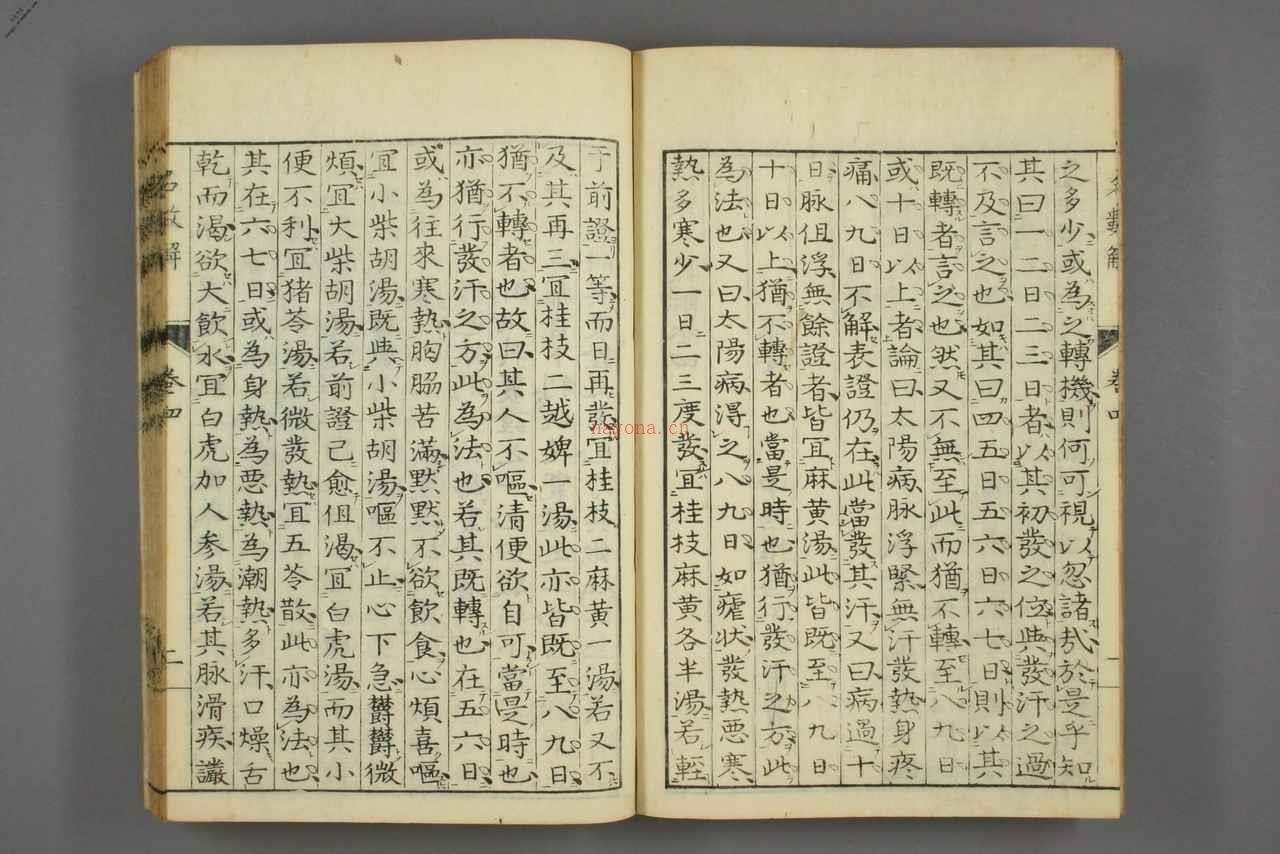 之多少或為之轉機則何可視以忽諸哉於是乎知
其曰一二日二三日者以其初發之位與發汗之過
不及言之也如其曰四五日五六日六七日則以其
既轉者言之也然又不無至此而猶不轉至八九日
或十日以上者論曰太陽病脉浮緊無汗發熱身疼
痛八九日不解表證仍在此當發其汗又曰病過十
日脉但浮無餘證者皆冝麻黄湯此皆既至八九日
十日以上猶不轉者也當是時也猶行發汗之方此
為法也又曰太陽病得之八九日如瘧狀發熱惡寒
熱多寒少一日二三度發冝桂枝麻黄各半湯若輕
于前證一等而日再發冝桂枝二麻黄一湯若又不
及其再三冝桂枝二越婢一湯此亦皆既至八九日
猶不轉者也故曰其人不嘔清便欲自可當是時也
亦猶行發汗之方此為法也若其既轉也在五六日
或為往來寒熱胸脇苦滿默默不欲飲食心煩喜嘔
冝小柴胡湯既與小柴胡湯嘔不止心下急鬱鬱微
煩冝大柴胡湯若前證已愈但渴冝白虎湯而其小
便不利冝猪苓湯若微發熱冝五苓散此亦為法也
其在六七日或為身熱為惡熱為潮熱多汗口燥舌
乾而渴欲大飲水冝白虎加人参湯若其脉滑疾讝
名數解
卷四
二
nayona.cn